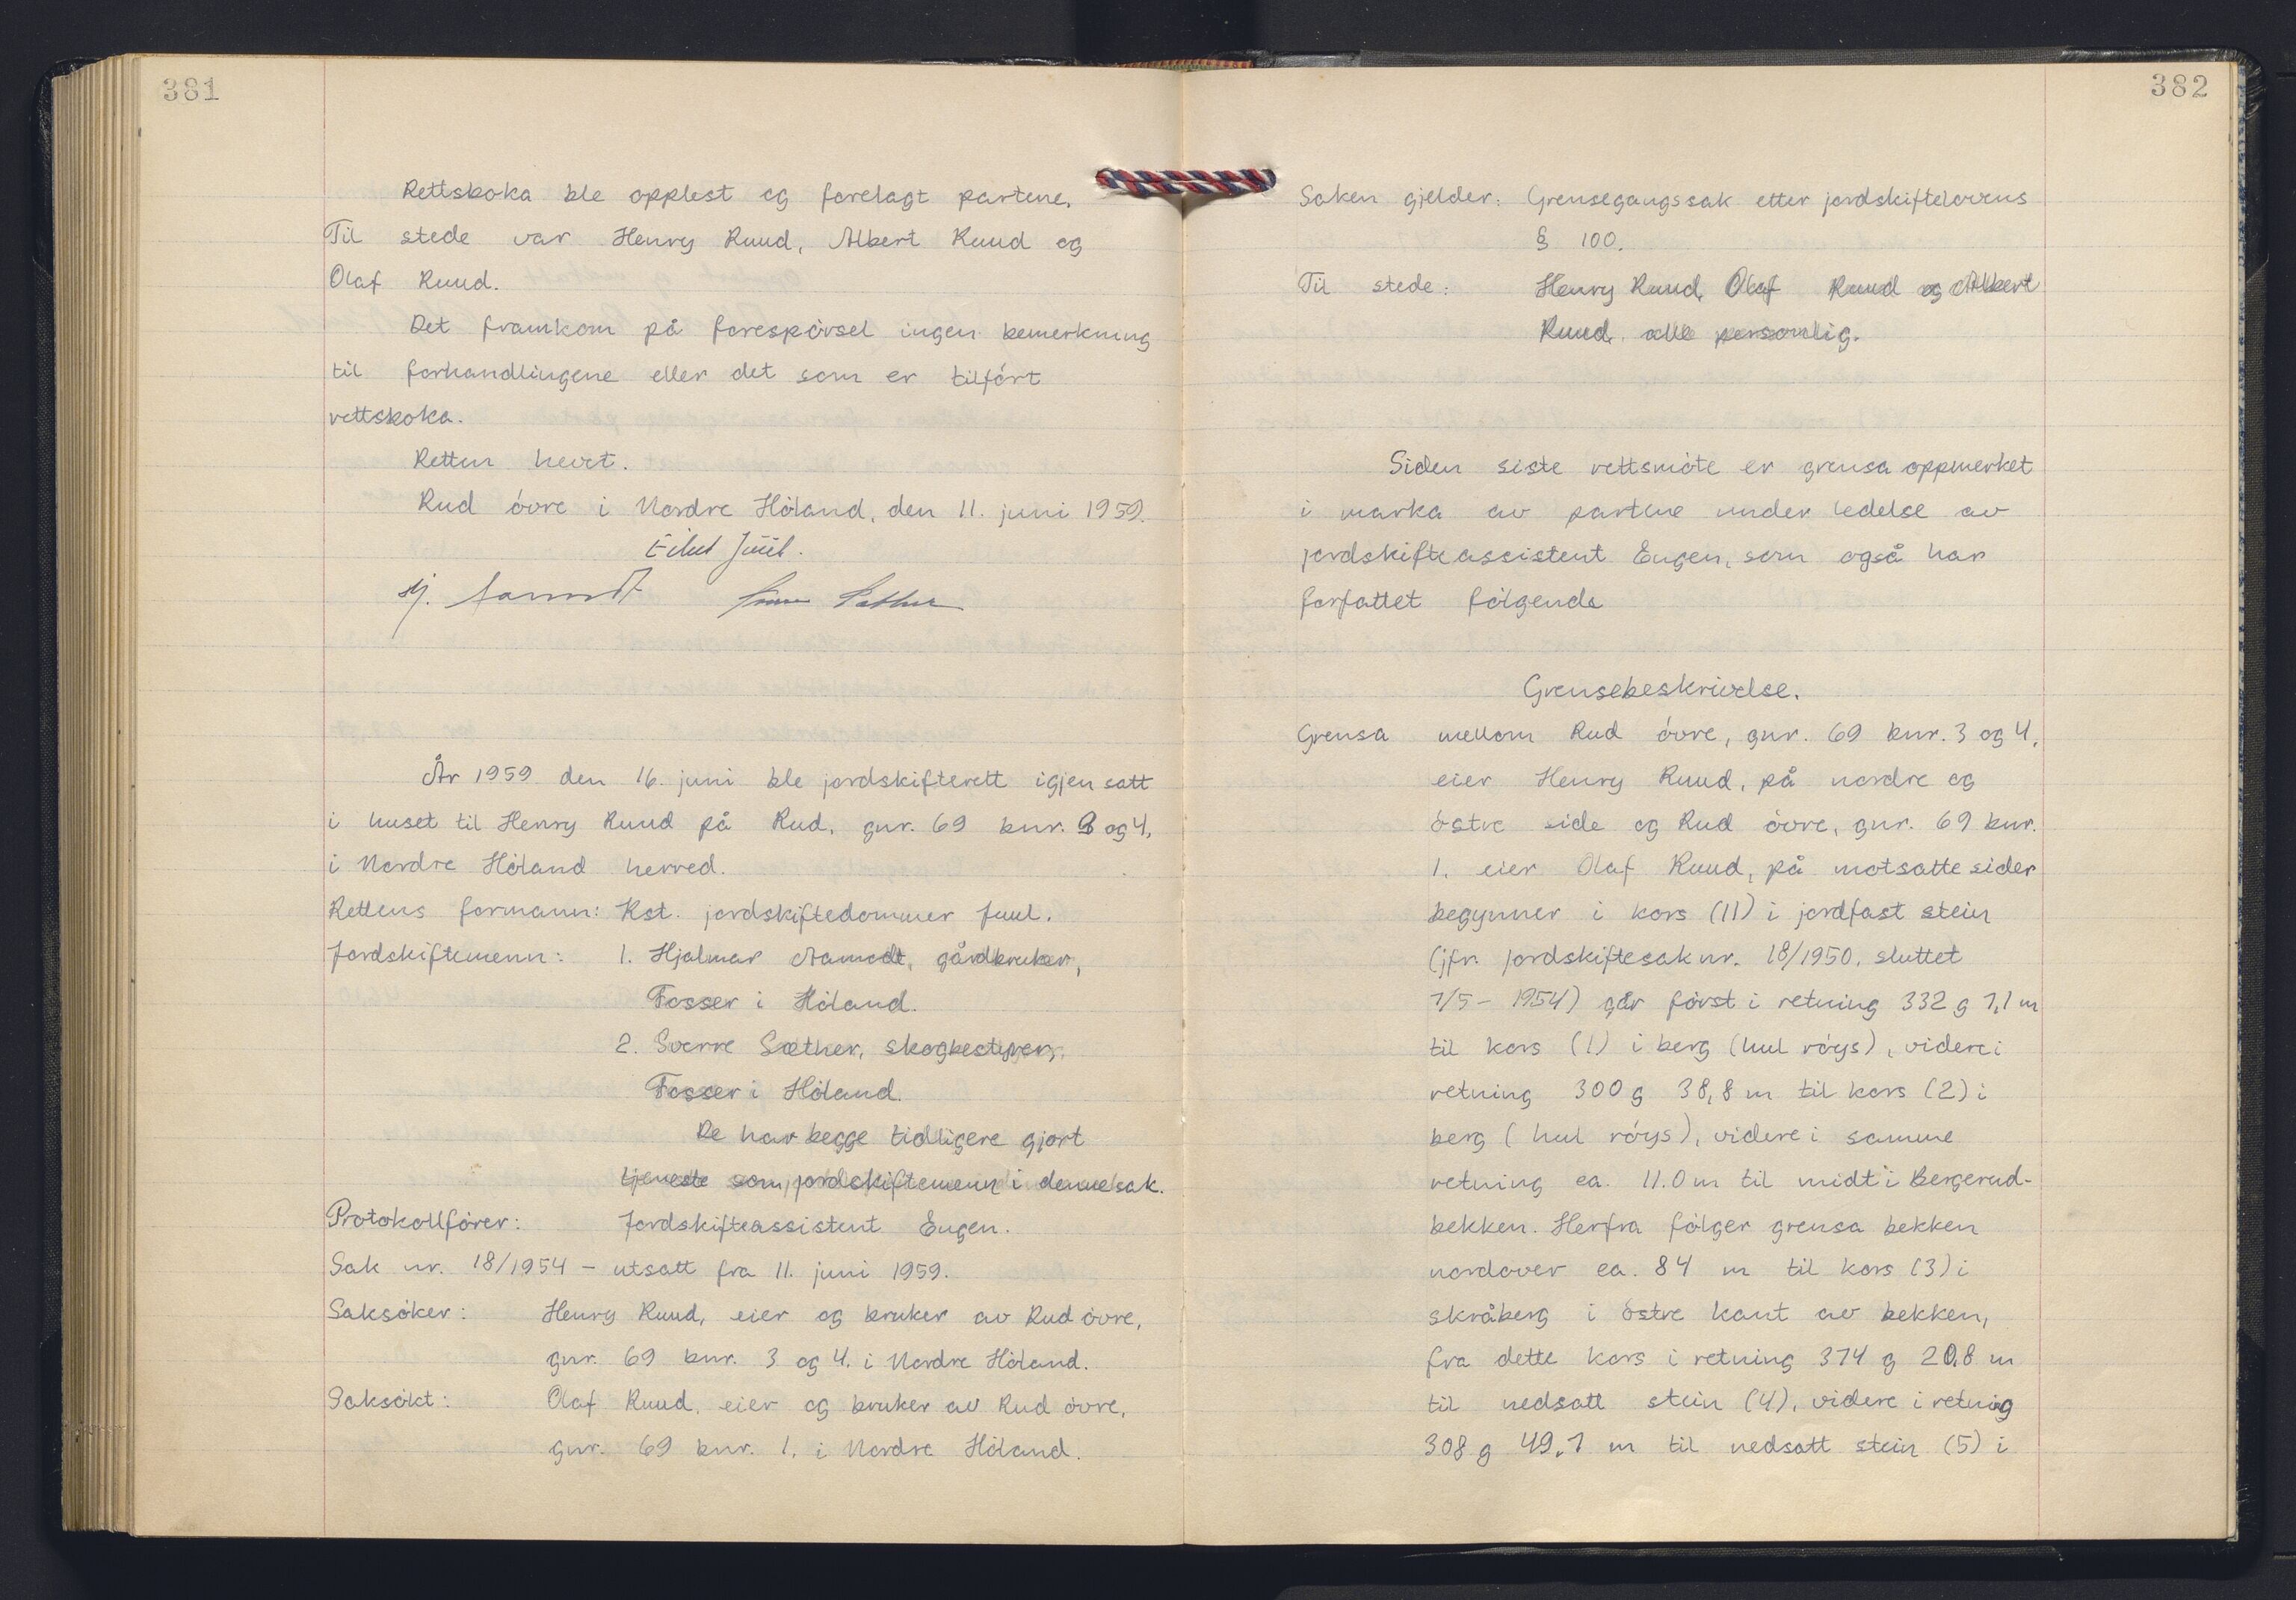 381
Rettsboka ble opplest og forelagt partene.
Til stede var Henry Ruud, Albert Ruud og
Olaf Ruud.
Det framkom på forespörsel ingen bemerkning
til forhandlingene eller det som er tilfört
rettsboka.
Retten hevet.
Rud övre i Nordre Höland, den 11. juni 1959.
Juul.
Hj. Aamodt Sverre Sæther
År 1959 den 16. juni ble jordskifterett igjen satt
i huset til Henry Ruud på Rud, gnr. 69 bnr. 3 og 4,
i Nordre Höland herred.
Rettens formann: Kst. jordskiftedommer Juul.
Jordskiftemenn: 1. Hjalmar Aamodt, gårdbruker,
Fosser i Höland.
2. Sverre Sæther, skogbestyrer,
Fosser i Höland.
De har begge tidligere gjort
tjeneste som jordskiftemenn i denne sak.
Protokollförer: Jordskifteassistent Eugen.
Sak nr. 18/1954 – utsatt fra 11. juni 1959.
Saksöker: Henry Ruud, eier og bruker av Rud övre,
gnr. 69 bnr. 3 og 4. i Nordre Höland.
Saksökt: Olaf Ruud, eier og bruker av Rud övre,
gnr. 69 bnr. 1. i Nordre Höland.
382
Saken gjelder: Grensegangssak etter jordskiftelovens
§ 100.
Til stede: Henry Ruud, Olaf Ruud og Albert
Ruud, alle personlig.
Siden siste rettsmöte er grensa oppmerket
i marka av partene under ledelse av
jordskifteassistent Eugen, som også har
forfattet fölgende
Grensebeskrivelse.
Grensa mellom Rud övre, gnr. 69 bnr. 3 og 4,
eier Henry Ruud, på nordre og
östre side og Rud övre, gnr. 69 bnr.
1. eier Olaf Ruud, på motsatte sider
begynner i kors (11) i jordfast stein
(jfr. jordskiftesak nr. 18/1950, sluttet
7/5 - 1954) går först i retning 332 g 7,1 m
til kors (1) i berg (hul röys), videre i
retning 300 g 38,8 m til kors (2) i
berg (hul röys), videre i samme
retning ca. 11.0 m til midt i Bergerud-
bekken. Herfra fölger grensa bekken
nordover ca. 84 m til kors (3) i
skråberg i östre kant av bekken,
fra dette kors i retning 374 g 20,8 m
til nedsatt stein (4), videre i retning
308 g 49.7 m til nedsatt stein (5) i